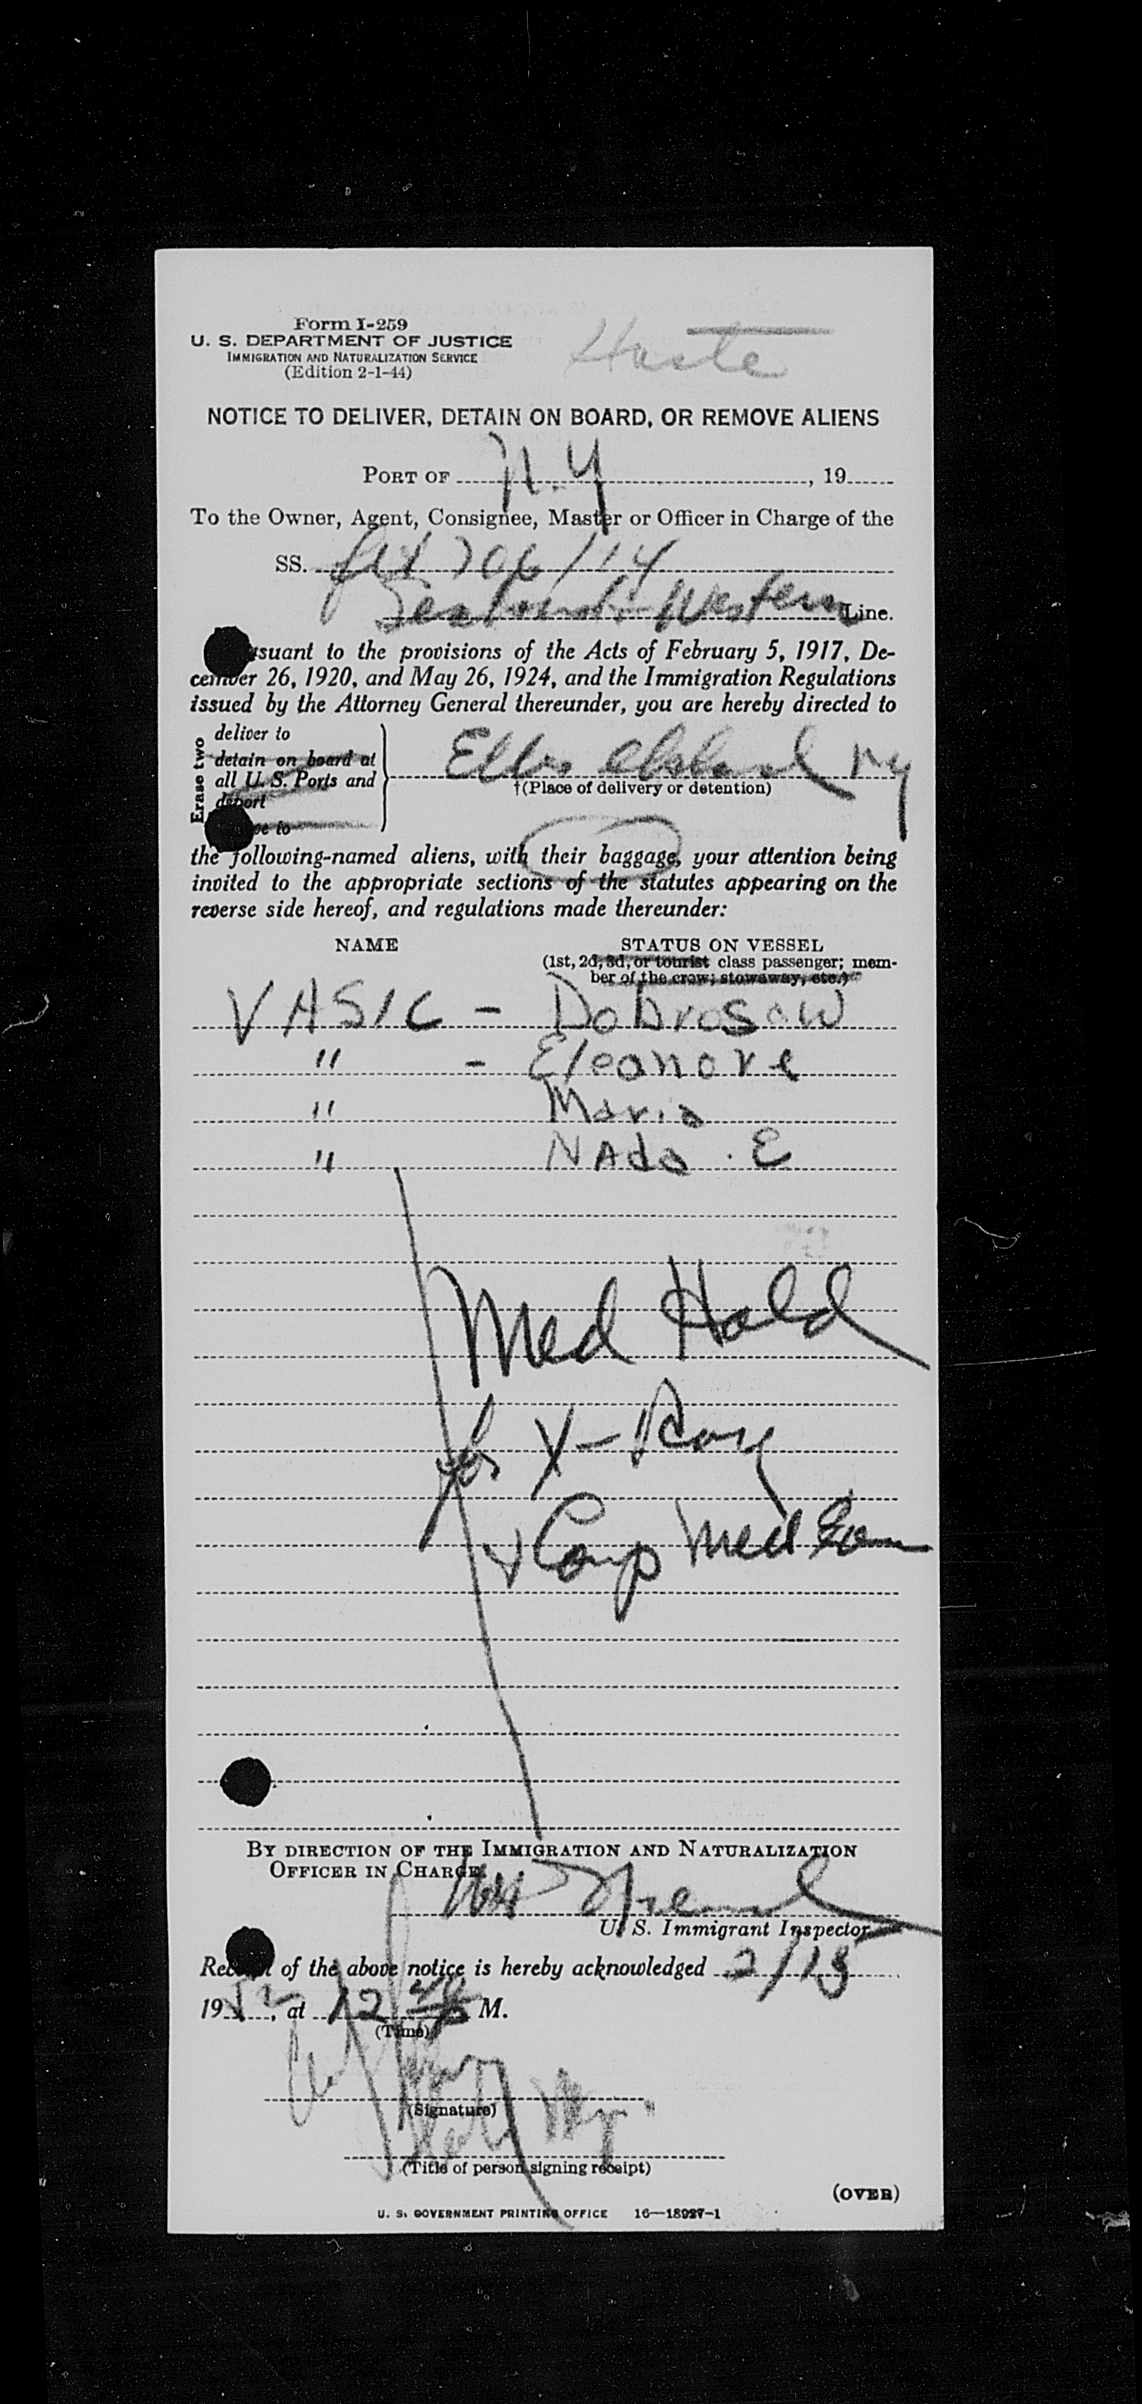 Form I-259
U. S. DEPARTMENT OF JUSTICE
IMMIGRATION AND NATURALIZATION SERVICE
(Edition 2-1-44)
NOTICE TO DELIVER, DETAIN ON BOARD, OR REMOVE ALIENS
PORT OF N.Y , 19
To the Owner, Agent, Consignee, Master or Officer in Charge of the
SS. flt 706/14
Seaboard & Western Line.
suant to the provisions of the Acts of February 5, 1917, De-
cember 26, 1920, and May 26, 1924, and the Immigration Regulations
issued by the Attorney General thereunder, you are hereby directed to
Erase two
deliver to
detain on board at
all U. S. Ports and
deport
ve to
Ellis Island NY
†(Place of delivery or detention)
the following-named aliens, with their baggage, your attention being
invited to the appropriate sections of the statutes appearing on the
reverse side hereof, and regulations made thereunder:
NAME STATUS ON VESSEL
(1st, 2d, 3d, or tourist class passenger; mem-
ber of the crew; stowaway, etc.)
VASIC - Dobrosaw
" - Eleanore
" Maria
" NAda . E
Med Hold
for X-Ray
& Comp Med Exam
BY DIRECTION OF THE IMMIGRATION AND NATURALIZATION
OFFICER IN CHARGE.
U. S. Immigrant Inspector.
Receipt of the above notice is hereby acknowledged 2/15
1952, at 12 M.
(Time)
(Signature)
(Title of person signing receipt)
(OVER)
U. S. GOVERNMENT PRINTING OFFICE 16—18927-1